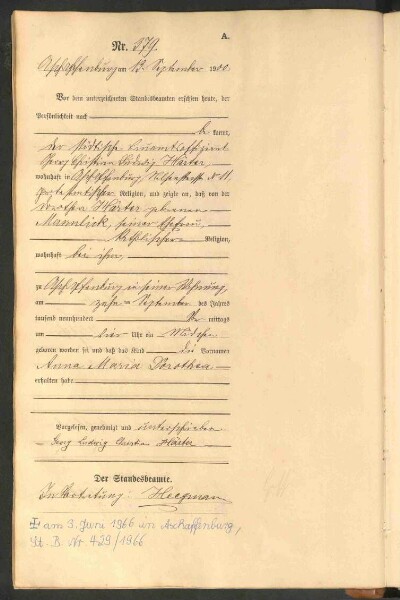 A.
Nr. 379.
Aschaffenburg am 12. September 1900.
Vor dem unterzeichneten Standesbeamten erschien heute, der
Persönlichkeit nach
be kannt,
der städtische
Georg Christian Ludwig Härter,
wohnhaft in Aschaffenburg, N 11
protestantischer Religion, und zeigte an, daß von der
Dorothea Härter geborenen
Mannlick, seiner Ehefrau,
katholischer Religion,
wohnhaft bei ihm,
zu Aschaffenburg in seiner Wohnung,
am zehn ten September des Jahres
tausend neunhundert Vor mittags
um vier Uhr ein Mädchen
geboren worden sei und daß das Kind die Vornamen
Anna Maria Dorothea
erhalten habe
Vorgelesen, genehmigt und unterschrieben
Georg Ludwig Christian Härter
Der Standesbeamte.
In Vertretung:
am 3. Juni 1966 in Aschaffenburg,
St. B. Nr 429/1966